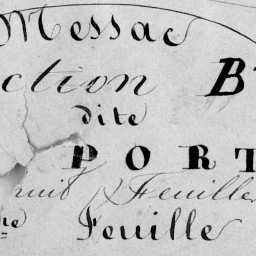 Messac
ction B
dite
PORT
Feuille
Feuille